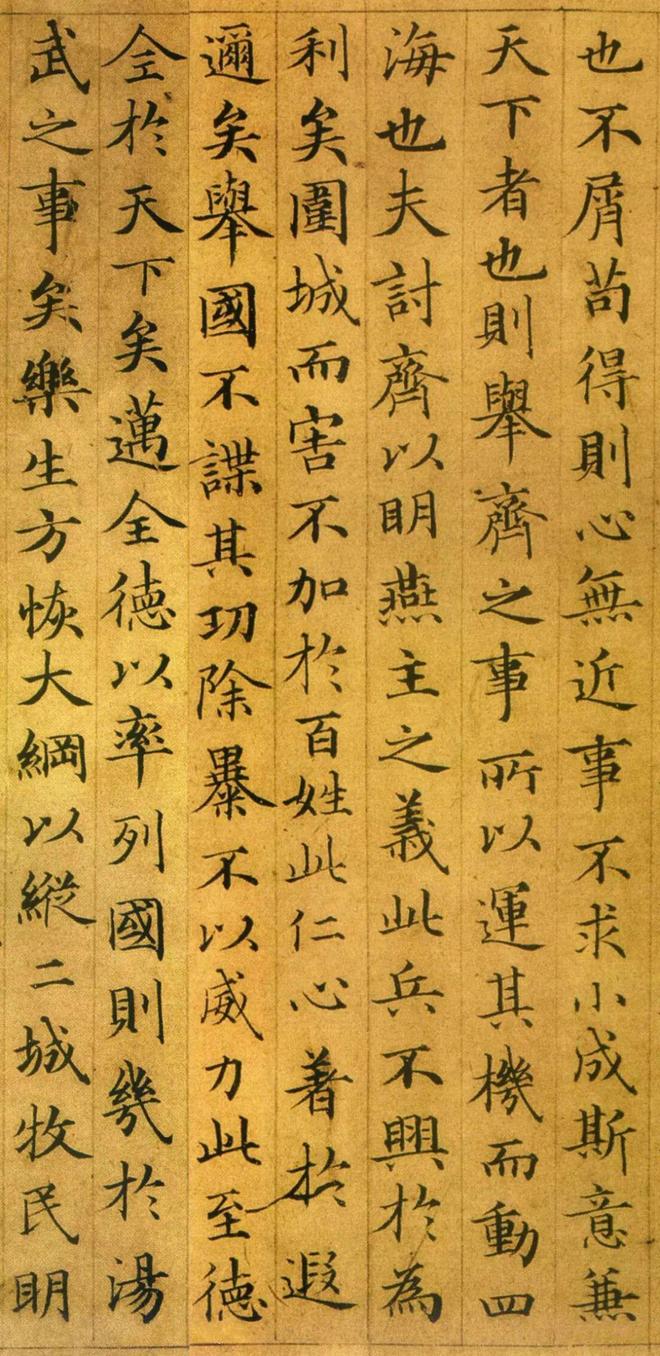 也不屑苟得則心無近事不求小成斯意兼
天下者也則舉齊之事所以運其機而動四
海也夫討齊以明燕主之義此兵不興於為
利矣圍城而害不加於百姓此仁心著於遐
邇矣舉國不謀其功除暴不以威力此至德
全於天下矣邁全德以率列國則幾於湯
武之事矣樂生方恢大綱以縱二城牧民明